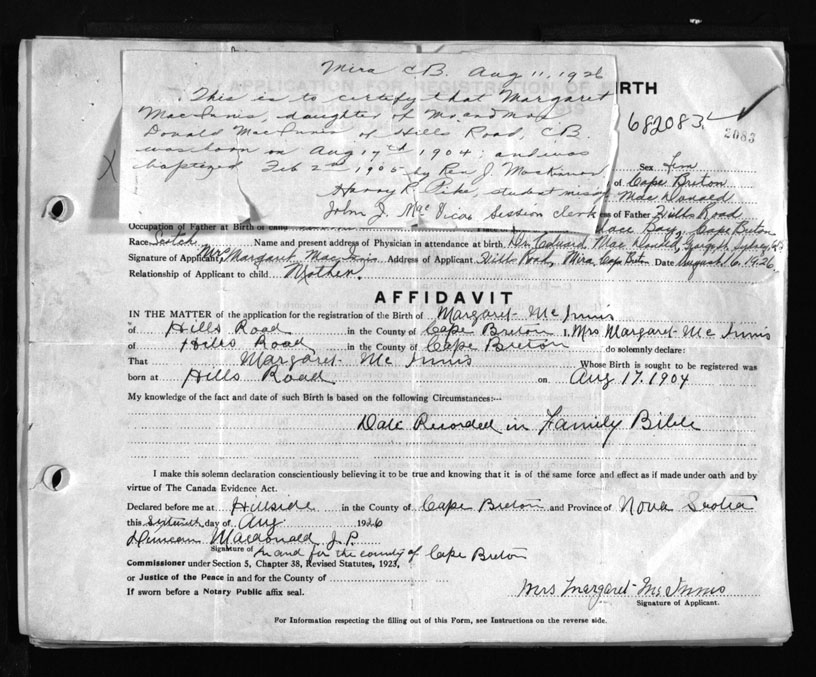 Mira C.B. Aug 11, 1926
This is to certify that Margaret
MacInnis, daughter of Mr. and Mrs
Donald MacInnis of Hills Road, C.B.
was born on Aug 17th 1904; and was
baptized Feb 2nd 1905 by Rev J. MacKinnon
Harvey R. Pike, student miss
John J. MacVicar Session Clerk
APPLICATION FOR REGISTRATION OF BIRTH
682083
2083
Sex Fem
of Cape Breton
MacDonald
of Father Hills Road
Glace Bay, Cape Breton
Occupation of Father at Birth of child
Race Scotch Name and present address of Physician in attendance at birth. Dr. Edward MacDonald, Sydney
Signature of Applicant, Mrs Margaret MacInnis Address of Applicant Hills Road, Mira, Cape Breton Date August 16, 1926.
Relationship of Applicant to child Mother.
AFFIDAVIT
IN THE MATTER of the application for the registration of the Birth of Margaret McInnis
of Hills Road in the County of Cape Breton I, Mrs Margaret McInnis
of Hills Road in the County of Cape Breton do solemnly declare:
That Margaret McInnis Whose Birth is sought to be registered was
born at Hills Road on Aug 17. 1904
My knowledge of the fact and date of such Birth is based on the following Circumstances:—
Date Recorded in Family Bible
I make this solemn declaration conscientiously believing it to be true and knowing that it is of the same force and effect as if made under oath and by
virtue of The Canada Evidence Act.
Declared before me at Hillside in the County of Cape Breton and Province of Nova Scotia
this Sixteenth day of Aug. 1926
Duncan Macdonald J.P.
Signature of In and for the county of Cape Breton
Commissioner under Section 5, Chapter 38, Revised Statutes, 1923,
or Justice of the Peace in and for the County of
If sworn before a Notary Public affix seal.
Mrs Margaret McInnis
Signature of Applicant.
For Information respecting the filling out of this Form, see Instructions on the reverse side.